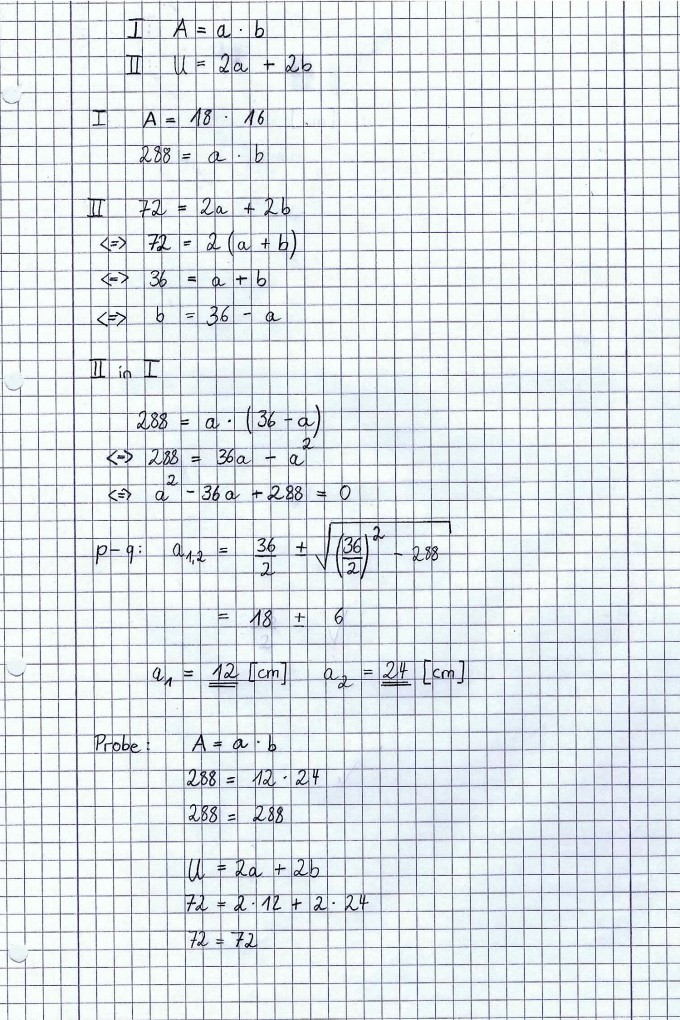 I A = a · b
II U = 2a + 2b
I A = 18 · 16
288 = a · b
II 72 = 2a + 2b
<=> 72 = 2 (a + b)
<=> 36 = a + b
<=> b = 36 - a
II in I
288 = a · (36 - a)
<=> 288 = 36a - a²
<=> a² - 36a + 288 = 0
p-q: a₁,₂ = 36/2 ± √((36/2)² - 288)
= 18 ± 6
a₁ = 12 [cm] a₂ = 24 [cm]
Probe: A = a · b
288 = 12 · 24
288 = 288
U = 2a + 2b
72 = 2 · 12 + 2 · 24
72 = 72